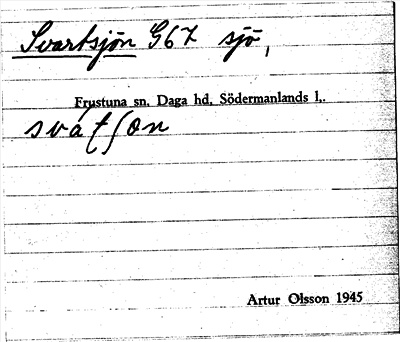 Svartsjön G67 sjö,
Frustuna sn, Daga hd, Södermanlands l..
svátʃøn
Artur Olsson 1945